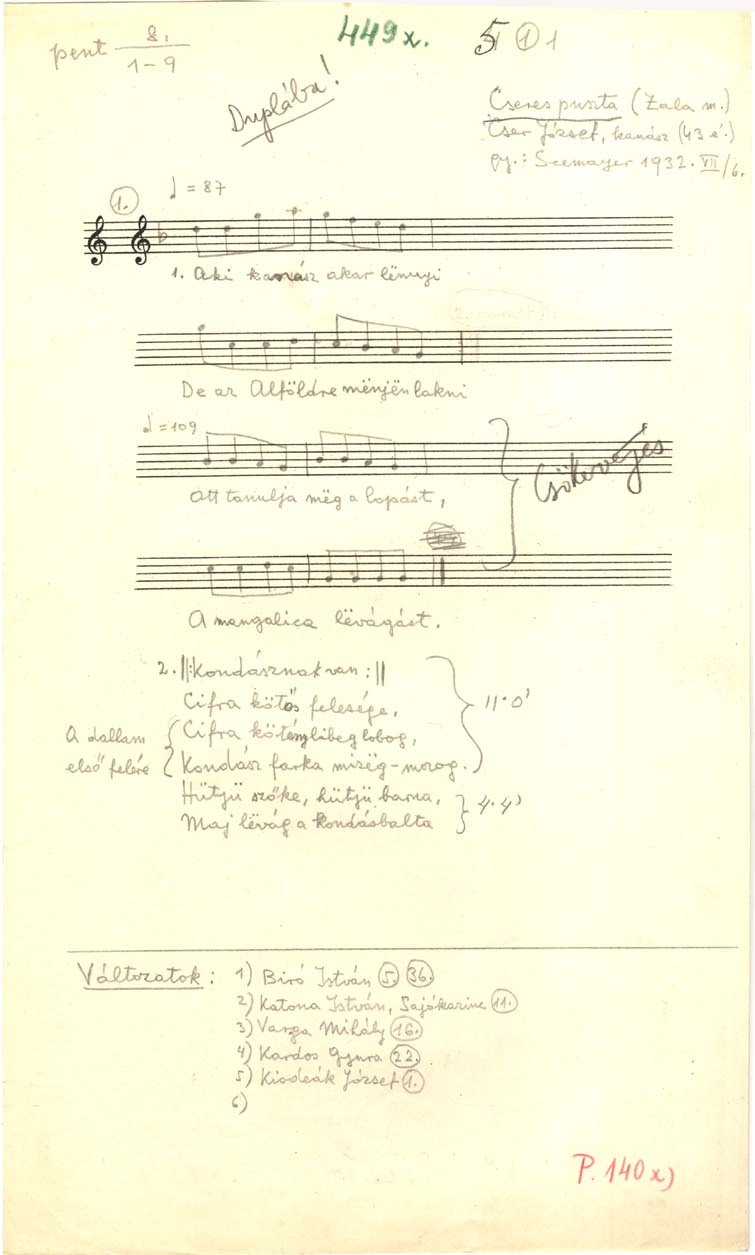 pent 8. / 1-9
449x. 5 1 1
Duplába!
Cserespuszta (Zala m.)
Cser József, kanász (43 é.)
gy.: Seemayer 1932. VII/6.
1. ♩ = 87
1. Aki kanász akar lënnyi
De az Alföldre mënjën lakni
♩ = 109
Ott tanulja mëg a lopást,
A mangalica lëvágást.
2. ||:Kondásznak van:||
Cifra kötős felesége,
11·0'
A dallam
első felére
Cifra kötény libeg lobog,
Kondász farka mizëg-mozog.
Hüttyü szőke, hüttyü barna,
4·4'
Maj lëvág a kondásbalta
Változatok: 1) Biró István 5. 36.
2) Katona István, 11.
3) Varga Mihály 16.
4) Kardos Gyura 22.
5) József 1.
6)
P. 140x)